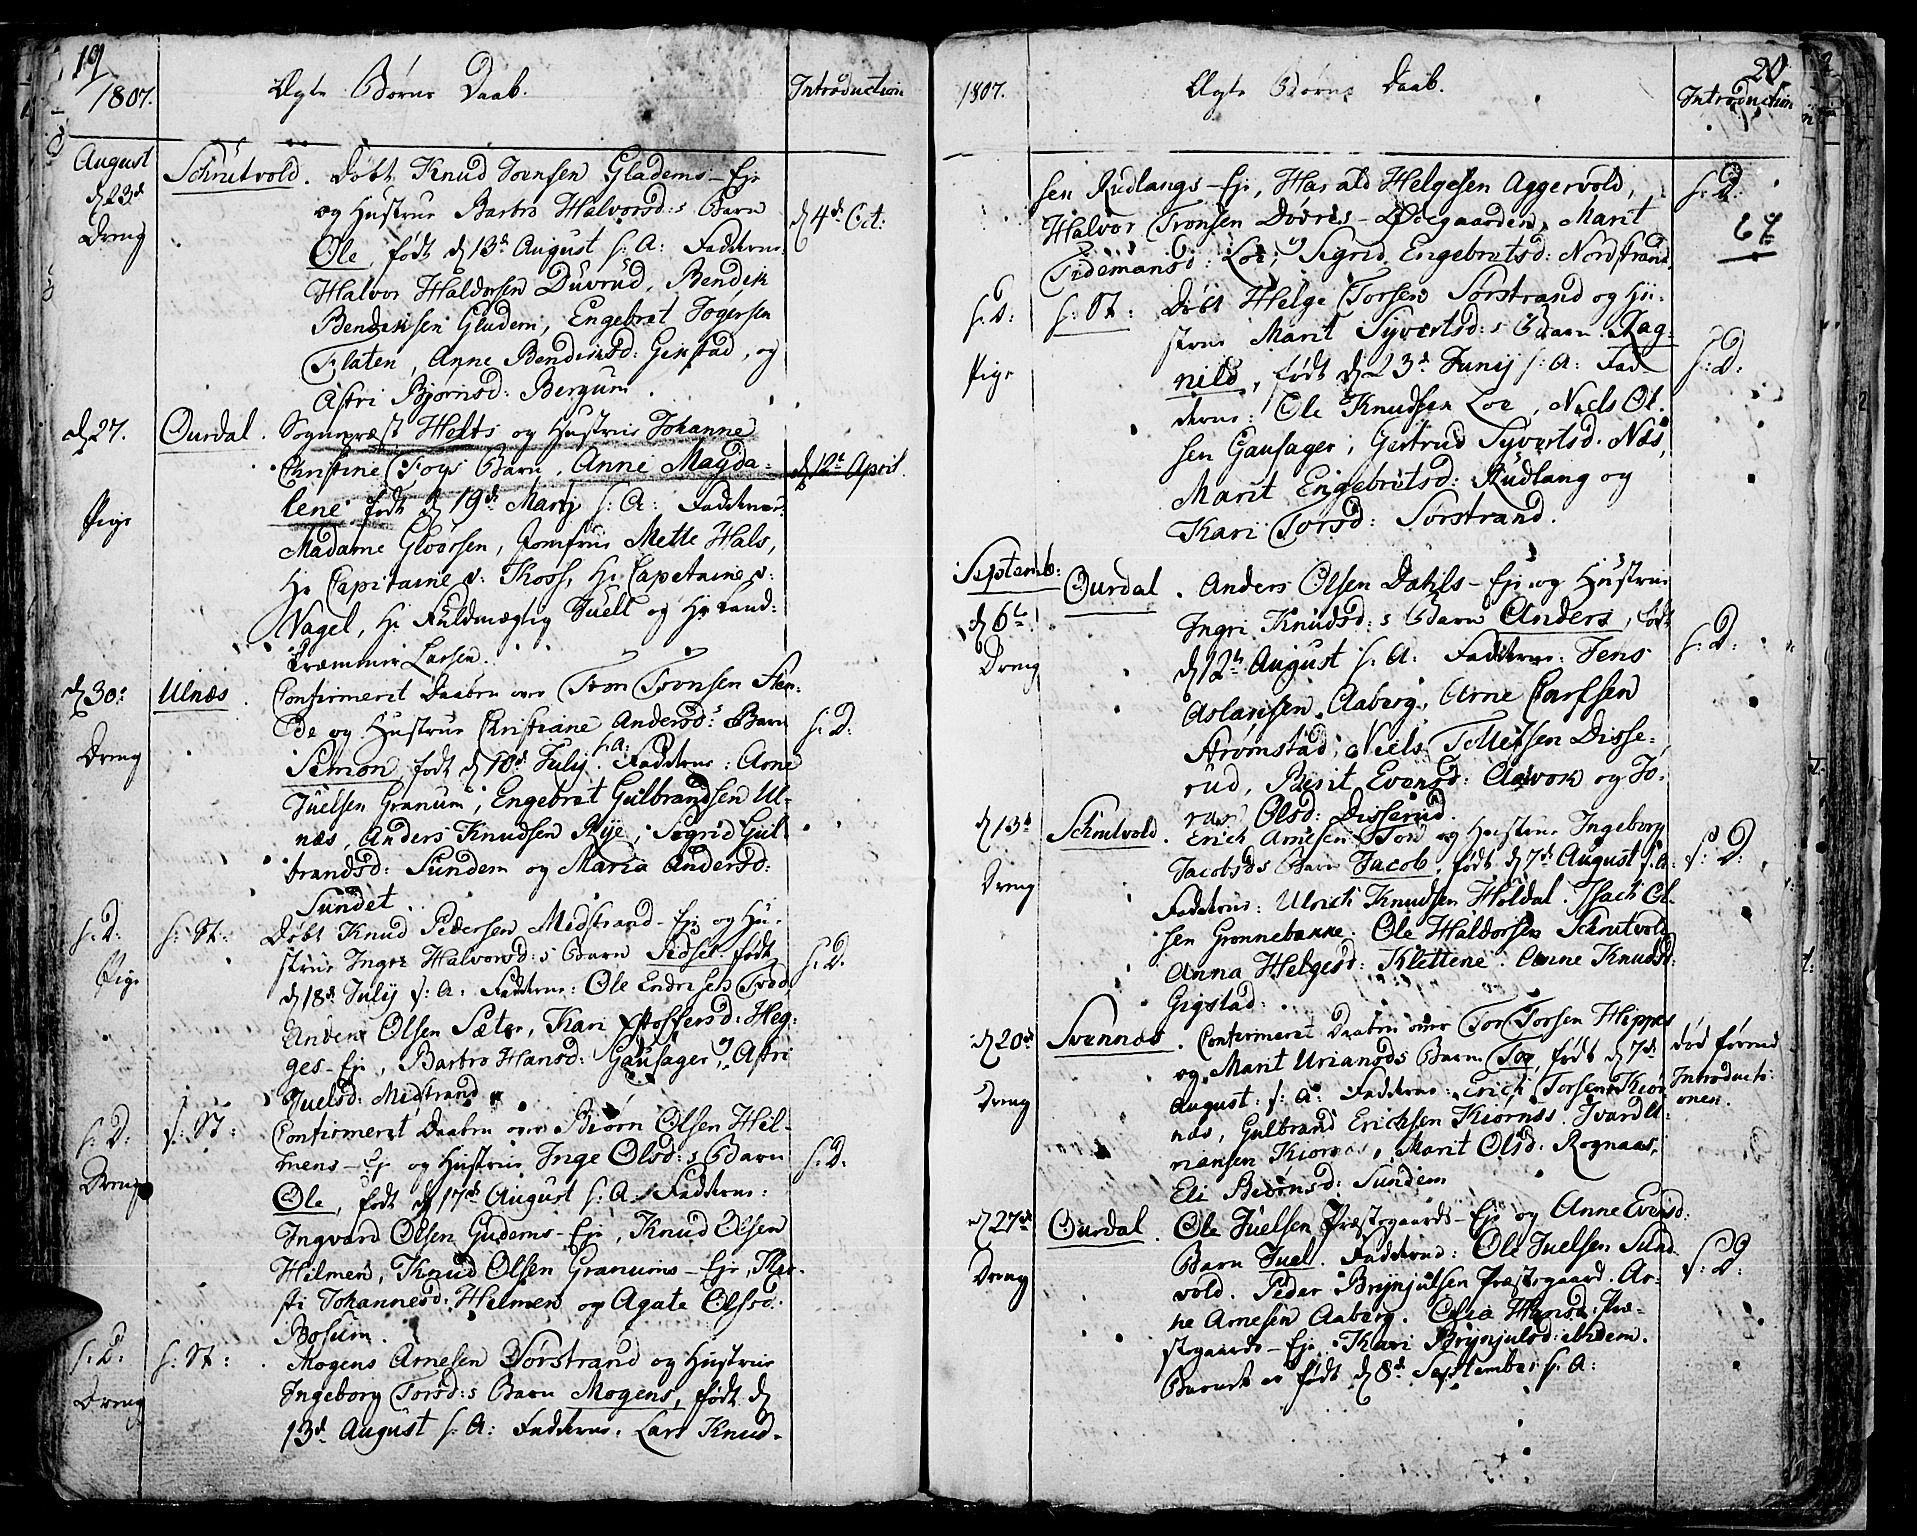 19
1807.
Ægte Børns Daab.
Introduction
August
d 23de
Dreng
Schrutvold. Døbt Knud Joensen Gladems-Eje
og Hustrue Barbro Halvorsd:s Barn
Ole, født d 13de August s: A: Fadderne:
Halvor Haldorsen Duvrud, Bendik
Bendiksen Gladem, Engebret Jogersen
Flaten, Anne Bendiksd: Gigstad, og
Astri Bjørnsd: Bergum.
d 4de Oct:
d 27.
Pige
Ourdal. Sognepræst Heltzs og Hustrue Johanne
Christine Foys Barn, Anne Magda-
lene født d 19de Martj s: A: Fadderne:
Madame Gloersen, Jomfrue Mette Hals,
Hr Capitaine v: Ross, Hr Capetaine v:
Nagel, Hr Fuldmægtig Juell og Hr Land-
Kræmmer Larsen.
d 12te April.
d 30te
Dreng
Ulnæs. Confirmeret Daaben over Tron Tronsen
og Hustrue Christiane Andersd:s Barn
Simon, født d 18de Julij s: A: Fadderne: Arne
Juelsen Granum, Engebret Gulbrandsen Ul-
næs, Anders Knudsen Rye, Sigrid Gul-
brandsd: Sundem og Maria Andersd:
Sundet.
s: D:
s: D:
Pige
s: St: Døbt Knud Pedersen Midstrand-Eje og Hu-
strue Ingri Halvorsd:s Barn Sidsel født
d 18de Julij s: A: Fadderne: Ole Endresen
Anders Olsen Sæter, Kari Stoffersd: Heg-
ges-Eje, Barbro Hansd: Gausager og Astri
Juelsd: Midstrand.
s: D:
s: D:
Dreng
s: St: Confirmeret Daaben over Biørn Olsen Hil-
mens-Eje og Hustrue Inge Olsd:s Barn
Ole, født d 17de August s: A: Fadderne:
Ingvard Olsen Gudems-Eje, Knud Olsen
Hilmen, Knud Olsen Granums-Eje, Mar-
ti Johannesd: Hilmen og Agate Olsd:
Bosum.
s: D:
s: D:
Dreng
s: St: Mogens Arnesen Sørstrand og Hustrue
Ingeborg Torsd:s Barn Mogens, født d
13de August s: A: Fadderne: Lars Knud-
20
1807.
Ægte Børns Daab.
Introduction
sen Rudlangs-Eje, Harald Helgesen Aggervold,
Halvor Tronsen Dövres-Ødegaarden, Marit
Tidemansd: Loe, og Sigrid Engebretsd: Nordstrand.
s: D:
67
s: D:
Pige
s: St: Døbt Helge Torsen Sørstrand og Hu-
strue Marit Syvertsd:s Barn Rag-
nild, født d 23de Junij s: A: Fad-
derne: Ole Knudsen Loe, Niels Ol-
sen Gausager, Gertrud Syvertsd: Næs,
Marit Engebretsd: Rudlang og
Kari Torsd: Sørstrand.
s: D:
Septemb:
d 6te
Dreng
Ourdal. Anders Olsen Dahls-Eje og Hustrue
Ingri Knudsd:s Barn Anders, født
d 12te August s: A: Fadderne: Jens
Aslaksen Aaberg, Arne Carlsen
Strømstad, Niels Tollefsen Disse-
rud, Berit Evensd: og Jo-
ran Olsd: Disserud.
s: D:
d 13de
Dreng
Schrutvold. Erick Arnesen Ton og Hustrue Ingeborg
Jacobsds Barn Jacob, født d 7de August s: A:
Fadderne: Ulrich Knudsen Holdal. Isach Ol-
sen Grønnebakke. Ole Haldorsen Schrutvold
Anna Helgesd: Klettene. Anne Knudsd:
Gigstad.
s: D:
d 20de
Dreng
Svennæs. Confirmeret Daaben over Tor Torsen Hippes
og Marit Uriansds Barn Tor, født d 7de
August: s: A: Fadderne: Erich Torsen Kiør-
næs, Gulbrand Erichsen Kiørnæs. Ivar U-
riansen Kiørnæs, Marit Olsd: Rognaas,
Eli Biörnsd: Sundem
død förend
Introducti-
onen.
d 27de
Dreng
Ourdal. Ole Juelsen Præstegaards-Eje og Anne Evensd:
Barn Juel. Fadderne: Ole Juelsen Sund-
vold. Peder Brynjulsen Præstegaard. Ar-
ne Arnesen Aaberg. Olia Hansd: Præ-
stegaards-Eje. Kari Brynjulsd: ibidem.
Barnet er født d 8de September s: A:
s: D: